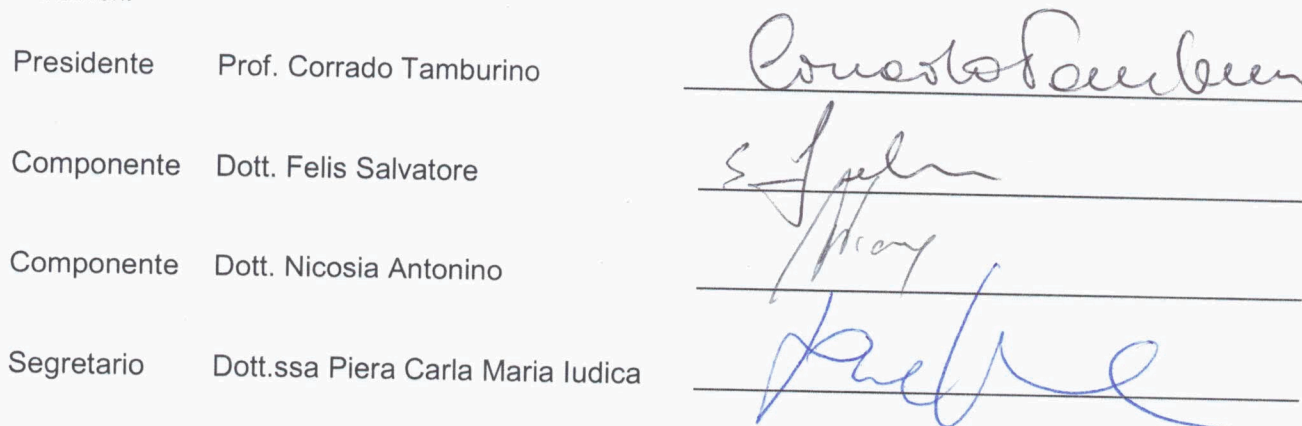 Presidente Prof. Corrado Tamburino
Componente Dott. Felis Salvatore
Componente Dott. Nicosia Antonino
Segretario Dott.ssa Piera Carla Maria Iudica